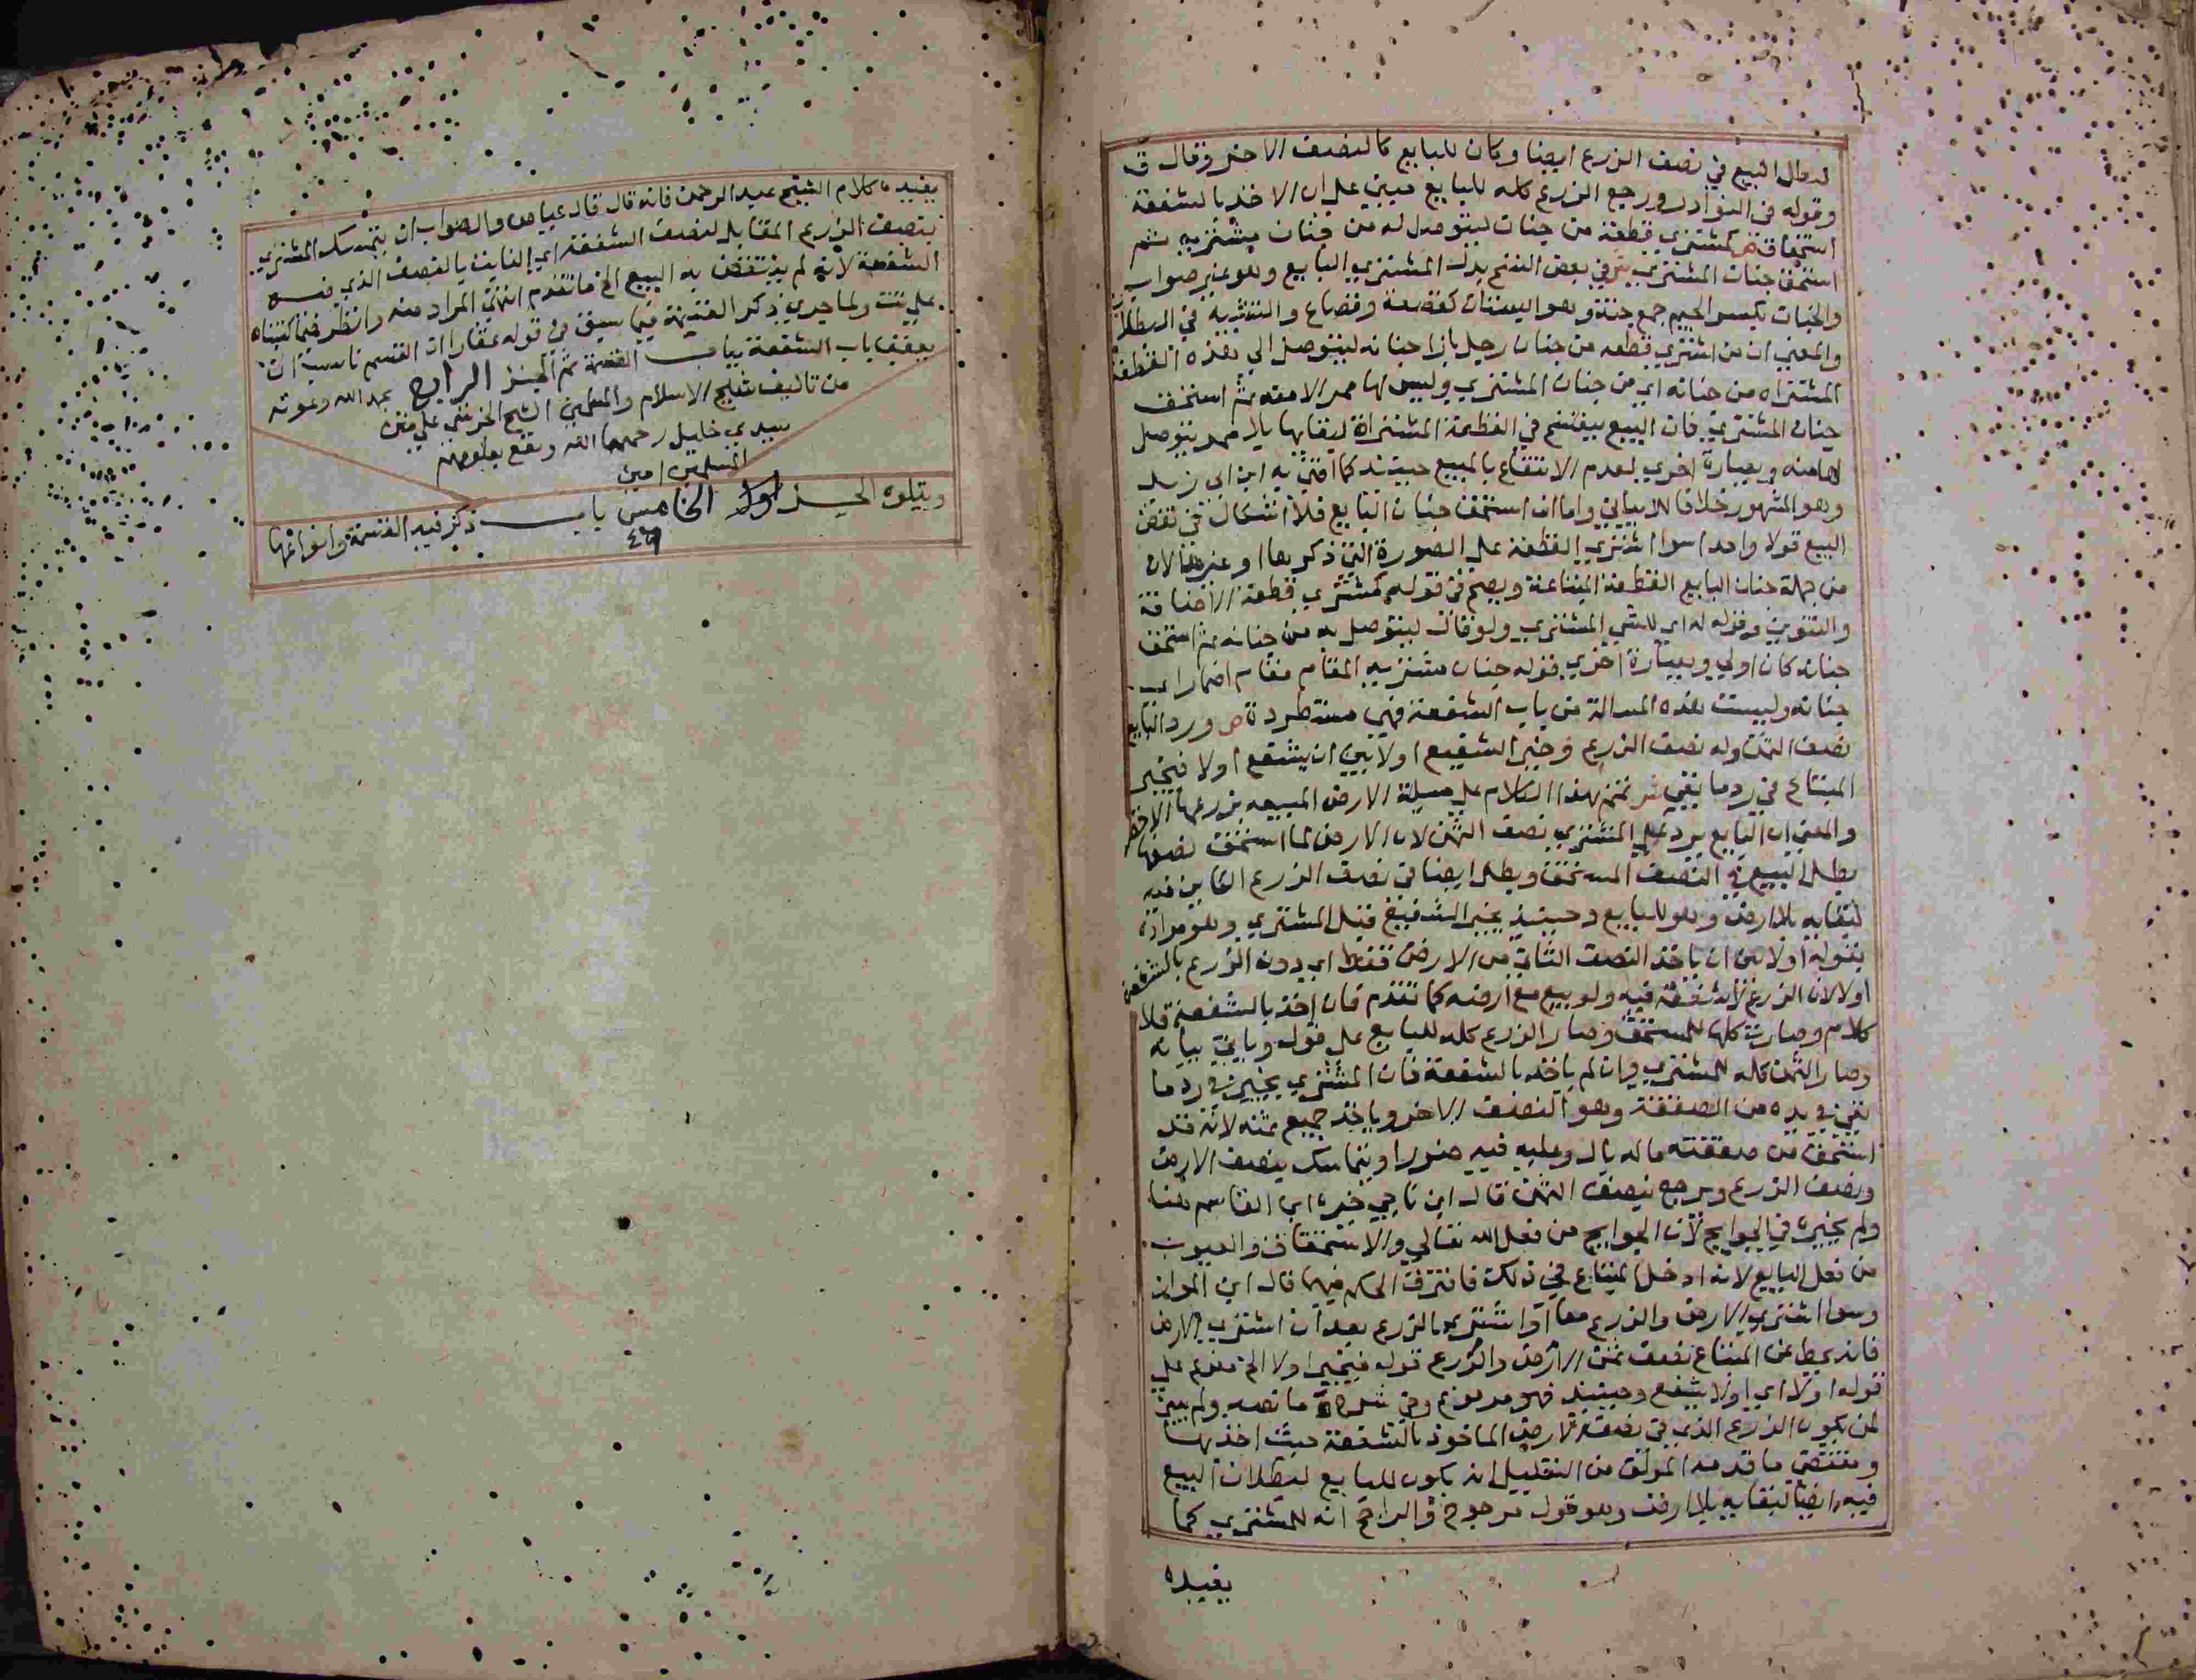 لبطل البيع في نصف الزرع ايضا وكان للبايع كالنصف الاخر وقال ق
وقوله في النوادر ورجع الزرع كله للبايع مبني على ان الاخذ بالشفعة
استحقاق ص كمشتري قطعة من جنات ليتوصل له من جنان مشتريه ثم
استحق جنات المشتري ش في بعض النسخ بدل المشتري البايع وهو غير صواب
والجنات بكسر الجيم جمع جنة وهو البستان كقصعة وقصاع والتشبيه في البطلان
والمعني ان من اشتري قطعه من جنان رجل بازا جنانه ليتوصل الي هذه القطعة
المشتراه من جنانه اي من جنان المشتري وليس لها ممر الا منه ثم استحق
جنان المشتري فان البيع ينفسخ في القطعة المشتراة لبقايها بلا ممر يتوصل
لها منه وبعبارة اخري لعدم الانتفاع بالمبيع حينيذ كما افتي به ابن ابي زيد
وهو المشهور خلافا للابياني واما ان استحق جنان البايع فلا اشكال في نقض
البيع قولا واحدا سوا اشتري القطعة علي الصورة التي ذكرها او غيرها لان
من جملة جنان البايع القطعة المبتاعة ويصح في قوله كمشتري قطعة الاضافة
والتنوين وقوله له اي للشي المشتري ولو قال ليتوصل له من جنانه ثم استحق
جنانه كان اولي وبعبارة اخري قوله جنان مشتريه المقام مقام اضمار اي
جنانه وليست هذه المسالة من باب الشفعة فهي مستطردة ص ورد البايع
نصف الثمن وله نصف الزرع وخير الشفيع اولا بين ان يشفع اولا فيخير
المبتاع في رد ما بقي ش تمم بهذا الكلام علي مسيلة الارض المبيعه بزرعها الاخضر
والمعني ان البايع يرد علي المشتري نصف الثمن لان الارض لما استحق نصفها
بطل البيع في النصف المستحق وبطل ايضا في نصف الزرع الكاين فيه
لبقايه بلا ارض وهو للبايع وحينيذ يخير الشفيع قبل المشتري وهو مراده
بقوله اولا بين ان ياخذ النصف الثاني من الارض فقط اي دون الزرع بالشفعة
اولا لان الزرع لا شفعة فيه ولو بيع مع ارضه كما تقدم فان اخذ بالشفعة فلا
كلام وصارت كلها للمستحق وصار الزرع كله للبايع علي قول وياتي بيانه
وصار الثمن كله للمشتري وان لم ياخذ بالشفعة فان المشتري يخير في رد ما
بقي في يده من الصفقة وهو النصف الاخر وياخذ جميع ثمنه لانه قد
استحق من صفقته ما له بال وعليه فيه ضرر او يتماسك بنصف الارض
ونصف الزرع ويرجع بنصف الثمن قال ابن ناجي خيره ابن القاسم هنا
ولم يخيره في الجوايح لان الجوايح من فعل الله تعالي والاستحقاق والعيوب
من فعل البايع لانه ادخل المبتاع في ذلك فافترق الحكم فيهما قال ابن المواز
وسوا اشتري الارض والزرع معا او اشتري الزرع بعد ان اشتري الارض
فانه يحط عن المبتاع نصف ثمن الارض والزرع قوله فيخير اولا الخ مفرع علي
قوله اولا اي اولا يشفع وحينيذ فهو مرفوع وفي ما نصه ولم يبين
لمن يكون الزرع الذي في نصف الارض الماخوذ بالشفعة حيث اخذ بها
ومقتضي ما قدمه المولف من التعليل انه يكون للبايع لبطلان البيع
فيه ايضا لبقايه بلا ارض وهو قول مرجوح والراجح انه للمشتري كما
يفيده
يفيده كلام الشيخ عبد الرحمن فانه قال قال عياض والصواب ان يتمسك المشتري
بنصف الزرع المقابل لنصف الشفعة اي الفايت بالنصف الذي فيه
الشفعة لانه لم ينتقض به البيع الخ ما تقدم انتهي المراد منه وانظر فيما كتبناه
علي تت ولما جري ذكر القسمة فيما سبق في قوله عقارا ان انقسم ناسب ان
يعقب باب الشفعة بباب القسمة تم الجز الرابع بحمد الله وعونه
من تاليف شيخ الاسلام والمسلمين الشيخ الخرشي علي متن
سيدي خليل رحمهما الله ونفع بعلومهم
المسلمين امين
ويتلوه الجز اول الخامس باب ذكر فيه القسمة وانواعها